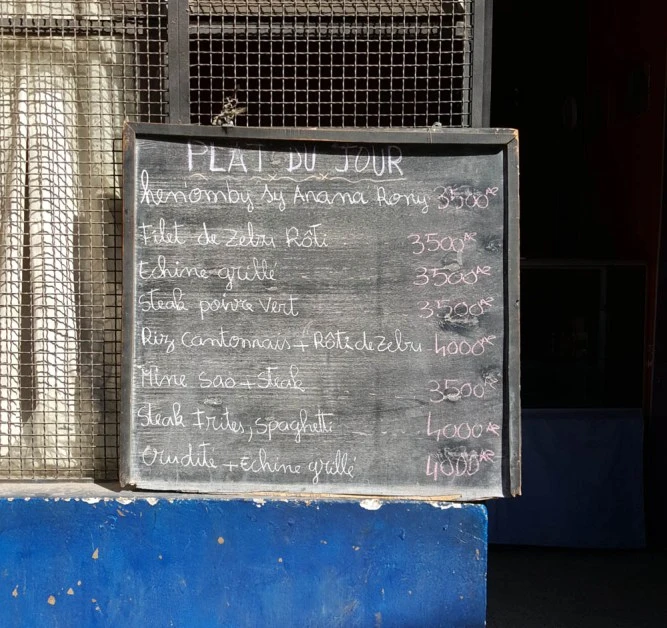 PLAT DU JOUR
henomby sy Anana Rony 3500AR
Filet de Zebu Rôti 3500AR
Echine grillé 3500AR
Steak poivre vert 3500AR
Riz Cantonnais + Rôti de Zebu 4000AR
Mine Sao + Steak 3500AR
Steak Frites, Spaghetti 4000AR
Crudité + Echine grillé 4000AR